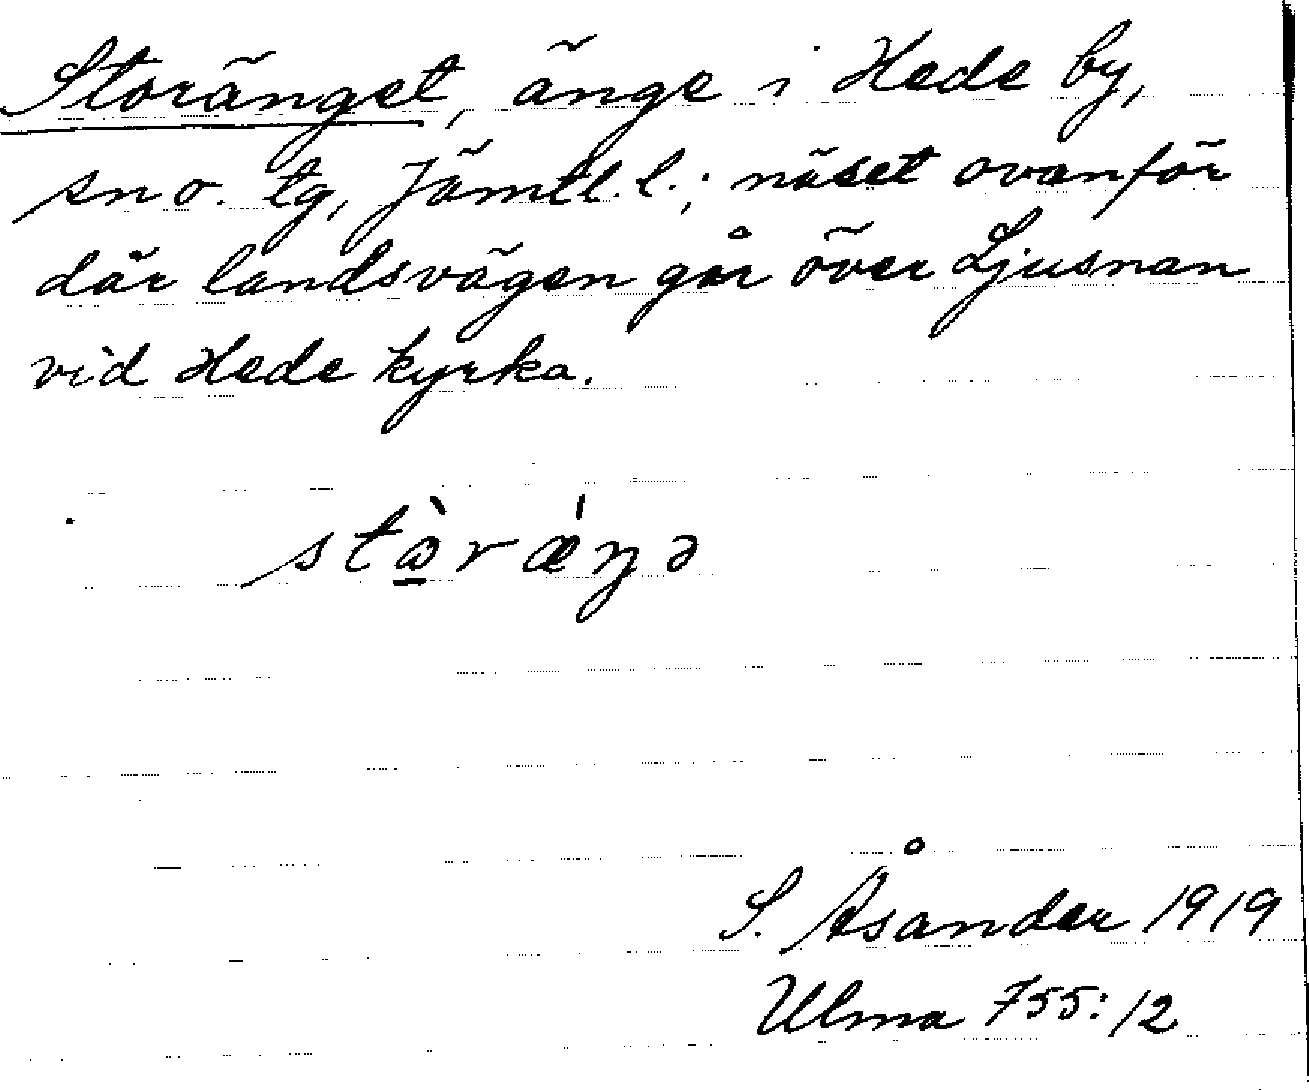 Storänget, änge i Hede by,
sn o. tg, Jämtl. l.; näset ovanför
där landsvägen går över Ljusnan
vid Hede kyrka.
stə̠̀rǽŋə
S. Åsander 1919
Ulma 755:12